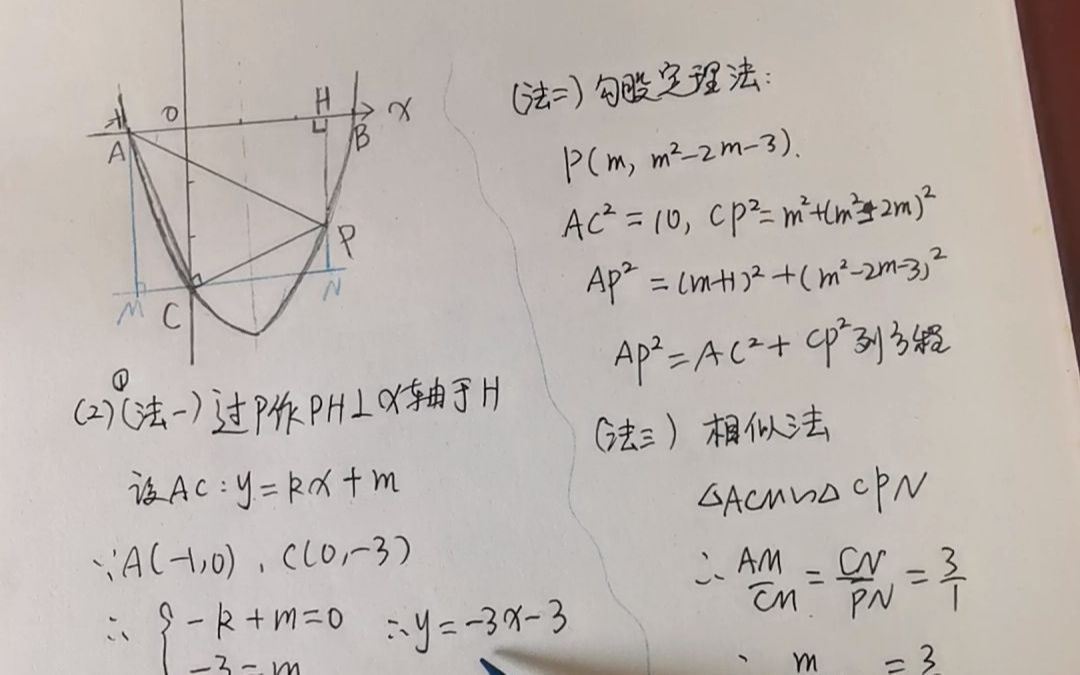 O
H
x
A
B
P
M
C
N
(2)①(法一)过P作PH⊥x轴于H
设AC:y=kx+m
∵A(-1,0),C(0,-3)
∴{-k+m=0 ∴y=-3x-3
-3=m
(法二)勾股定理法:
P(m,m²-2m-3).
AC²=10,CP²=m²+(m²-2m)²
AP²=(m+1)²+(m²-2m-3)²
AP²=AC²+CP²列方程
(法三)相似法
△ACM∽△CPN
∴AM/CM=CN/PN=3/1
m =3